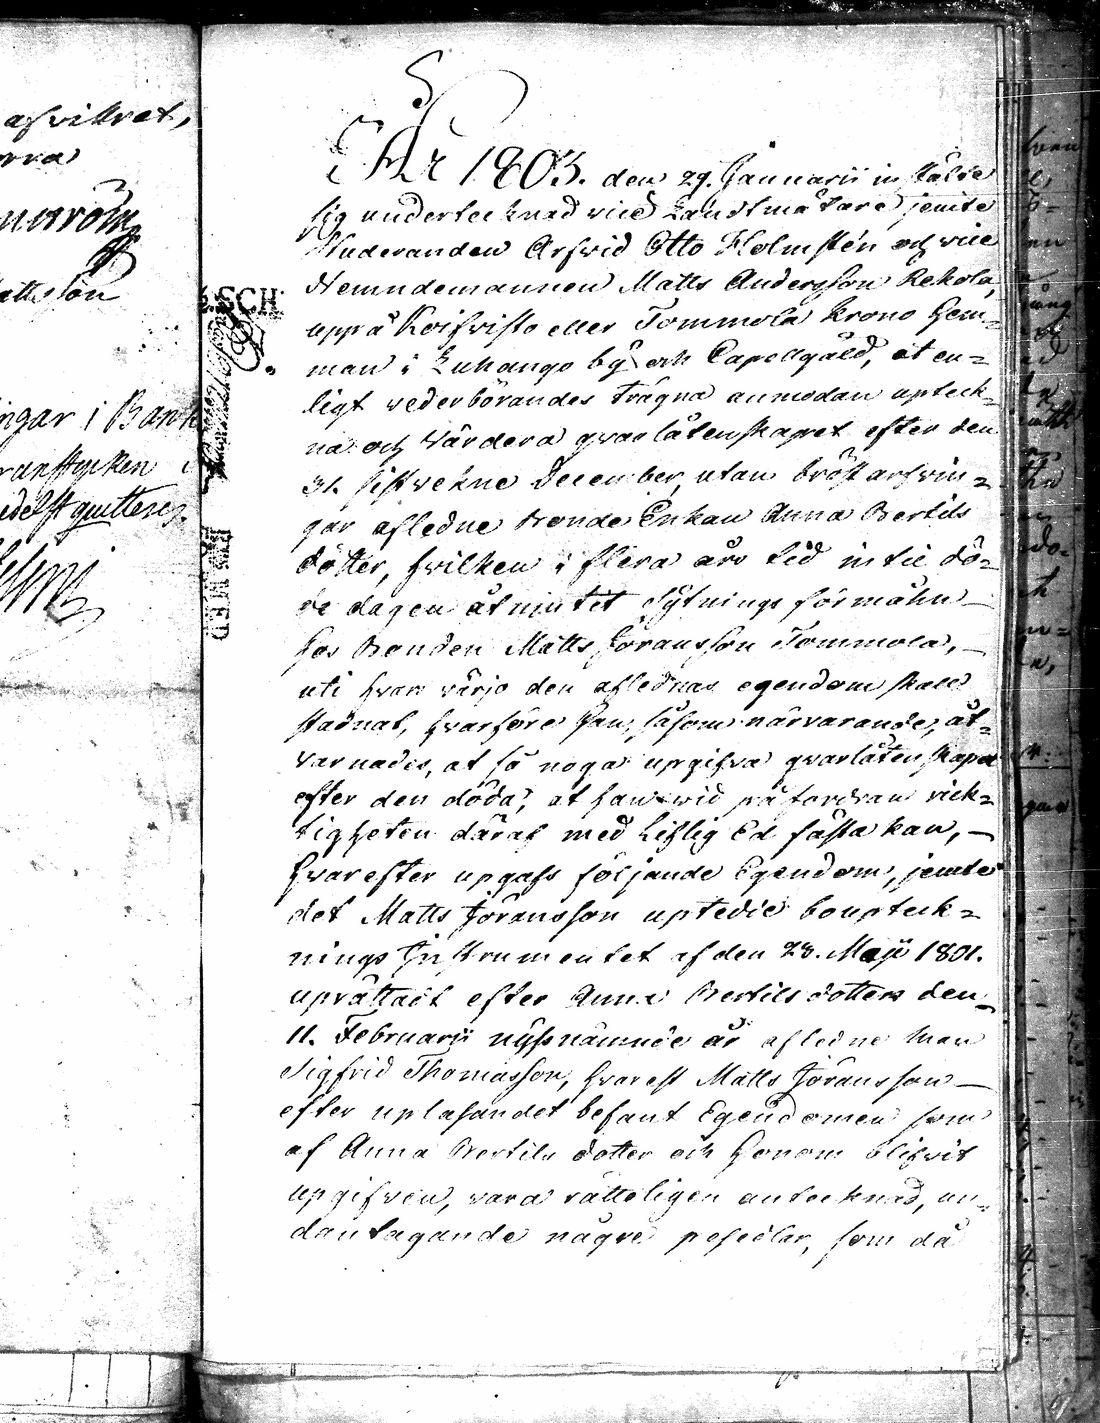 afvittrat,
orra
mström
attsson
ingar i Bank
ransstycken
edelst quitteras
SCH
År 1803. den 29. Januarii instälde
sig undertecknad vice Landtmätare, jemte
Studeranden Arfwid Otto Holmstén och vice
Nemndemannen Matts Andersson Rekola,
uppå Koifvisto eller Tommola Krono Hem-
man i Luhango by och Capellgäld, at en-
ligt vederbörandes trägna anmodan upteck-
na och värdera qvarlåtenskapet efter den
31. sistvekne December, utan bröstarfvin-
gar afledne Bonde Enkan Anna Bertils
dotter, hvilken i flera års tid in til dö-
de dagen åtniutit Sytnings förmåhn
hos Bonden Matts Jöransson Tommola,
uti hvars värjo den aflednas egendom skall
stadnat, hvarföre han, såsom närvarande, åt-
varnades, at så noga upgifva qvarlåtenskapet
efter den döda, at han wid påfordran rick-
tigheten däraf med Liflig Ed fästa kan,
Hvarefter upgafs följande Egendom, jemte
det Matts Jöransson uptedde boupteck-
nings Instrumentet af den 28. Maji 1801.
uprättadt efter Anna Bertils dotters den
11. Februarii nyssnämnde år afledne man
Sigfrid Thomasson, hvarest Matts Jöransson
efter upläsandet befant Egendomen som
af Anna Bertils dotter och honom blifvit
upgifven, vara rätteligen antecknad, un-
dantagande någre persedlar, som då